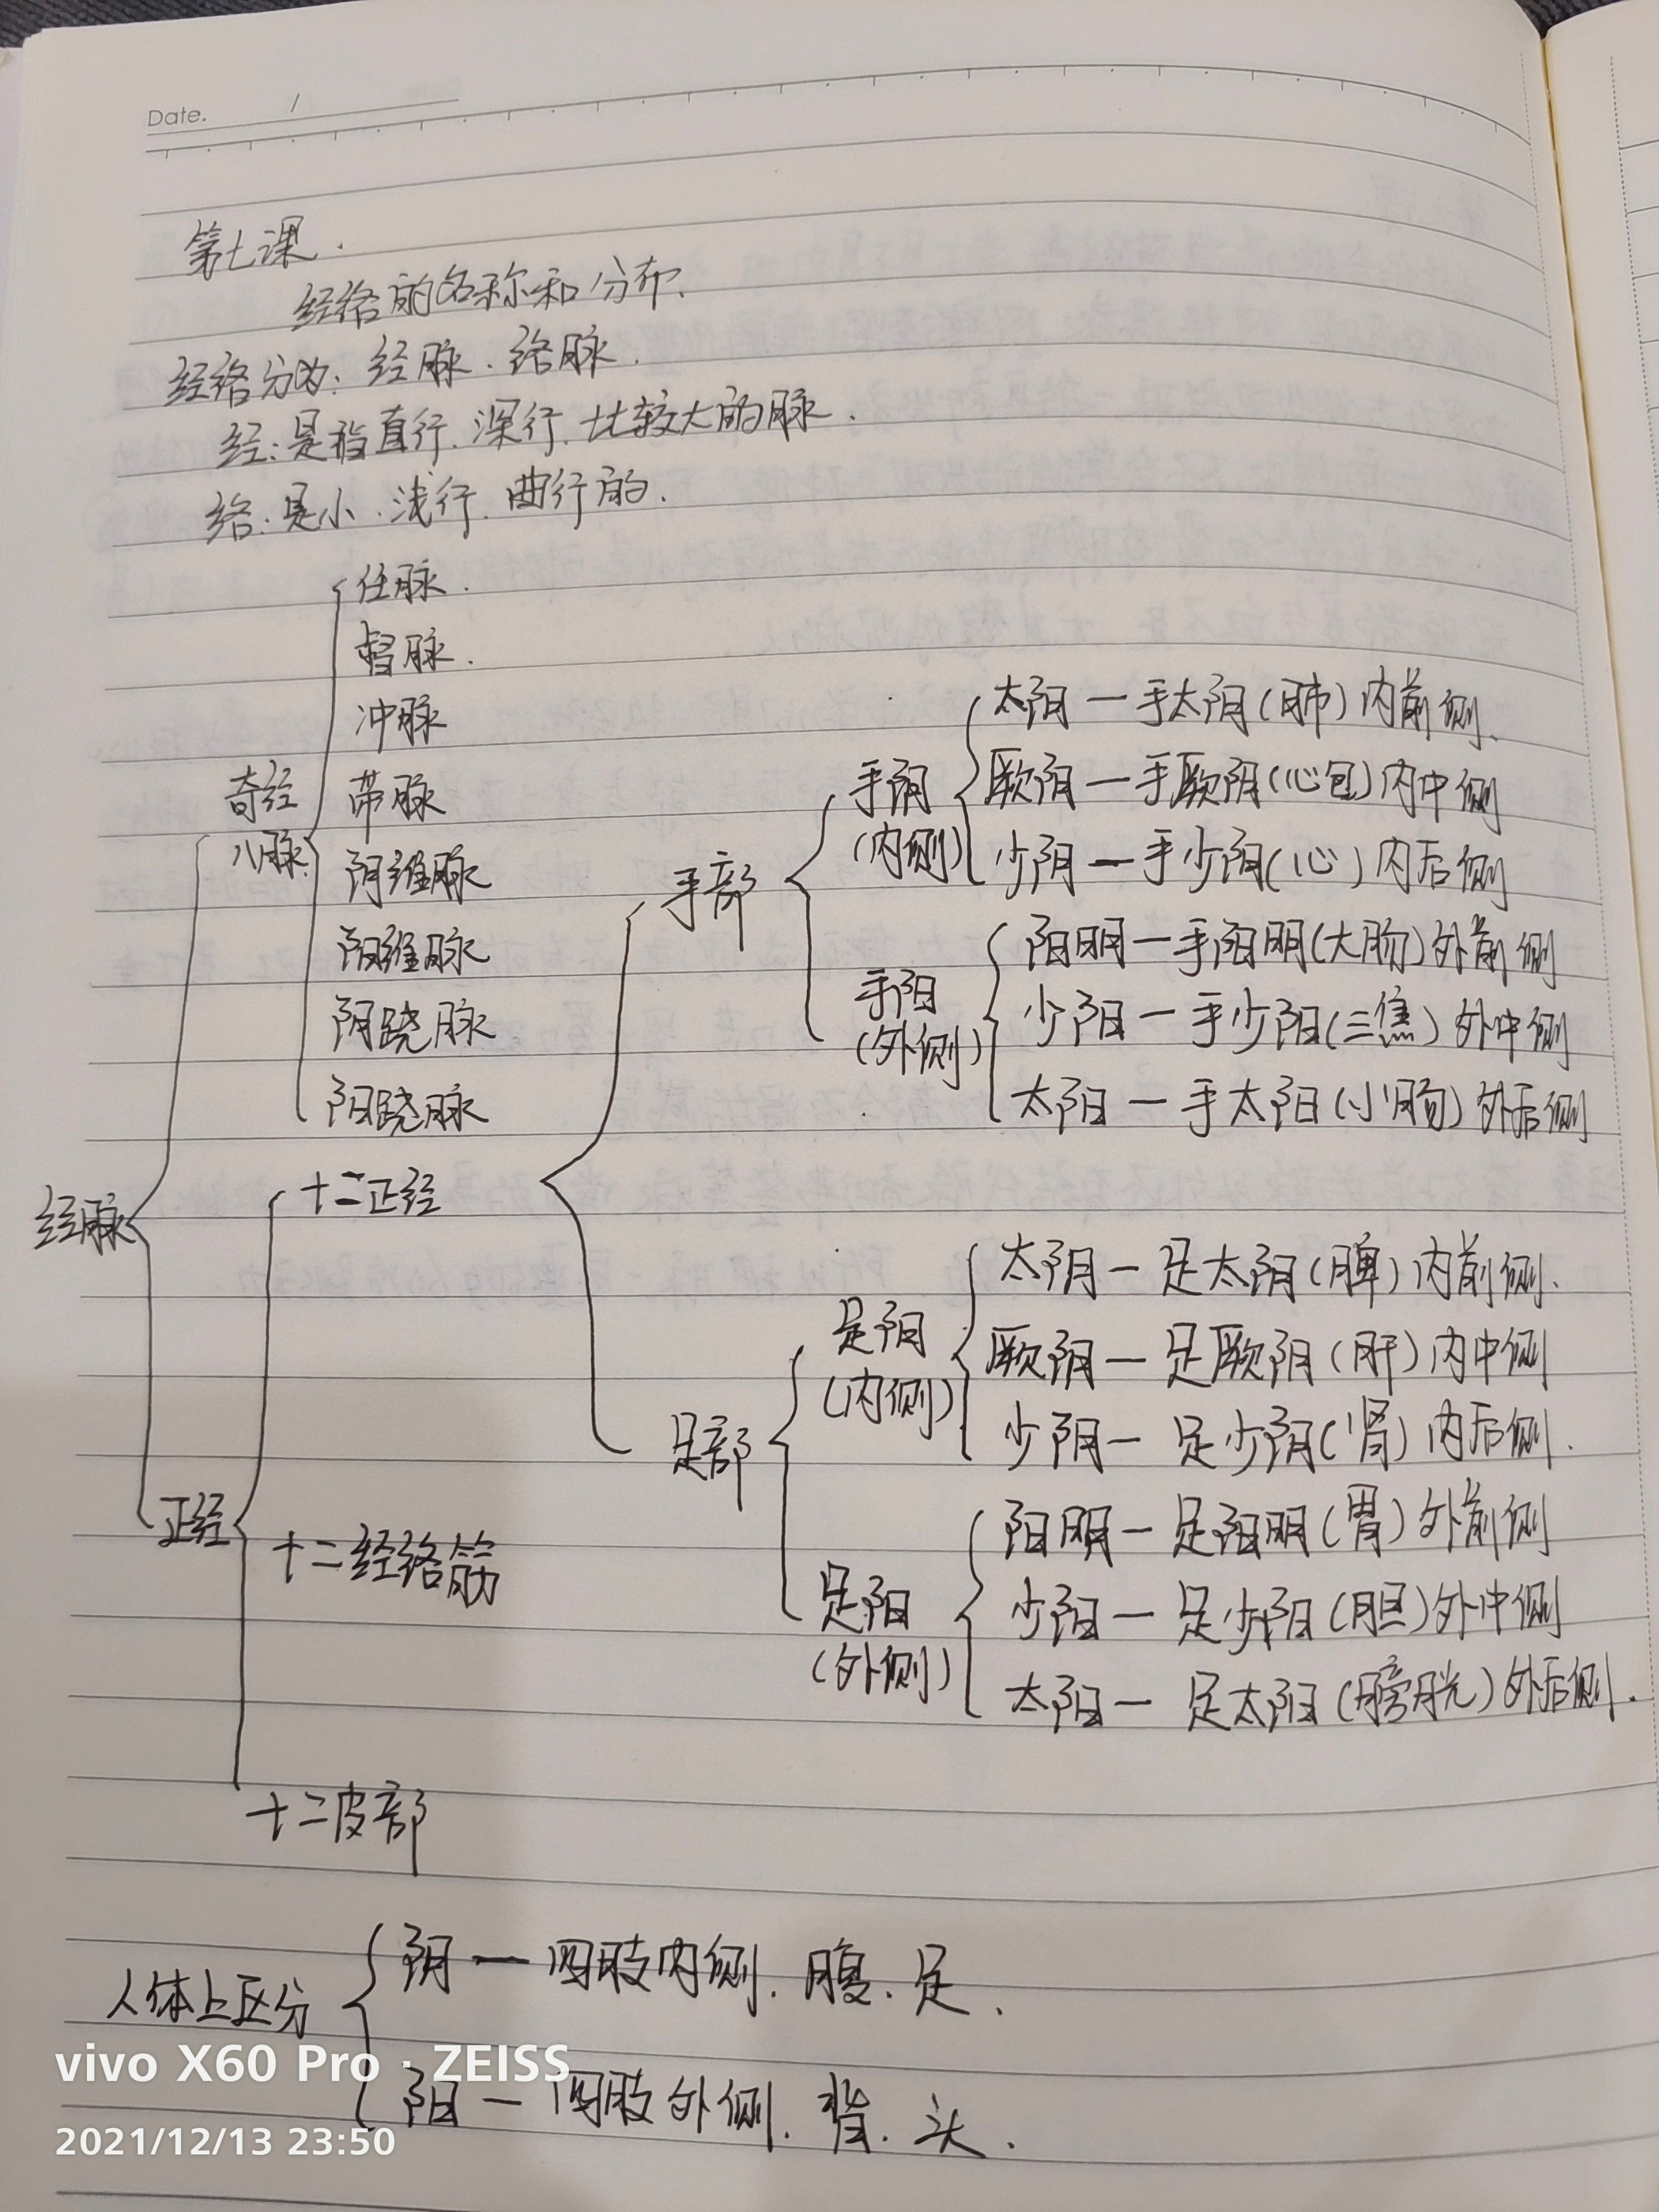 Date. /
第七课.
经络的名称和分布.
经络分为:经脉.络脉.
经:是指直行.深行.比较大的脉.
络:是小.浅行.曲行的.
任脉.
督脉.
冲脉
奇经八脉
带脉
阴维脉
阳维脉
阴跷脉
阳跷脉
手部
手阴(内侧)
太阴一手太阴(肺)内前侧.
厥阴一手厥阴(心包)内中侧
少阴一手少阴(心)内后侧
手阳(外侧)
阳明一手阳明(大肠)外前侧
少阳一手少阳(三焦)外中侧
太阳一手太阳(小肠)外后侧
经脉
十二正经
足部
足阴(内侧)
太阴一足太阴(脾)内前侧.
厥阴一足厥阴(肝)内中侧
少阴一足少阴(肾)内后侧.
足阳(外侧)
阳明一足阳明(胃)外前侧
少阳一足少阳(胆)外中侧
太阳一足太阳(膀胱)外后侧.
正经
十二经络筋
十二皮部
人体上区分
阴一四肢内侧.腹.足.
阳一四肢外侧.背.头.
vivo X60 Pro · ZEISS
2021/12/13 23:50